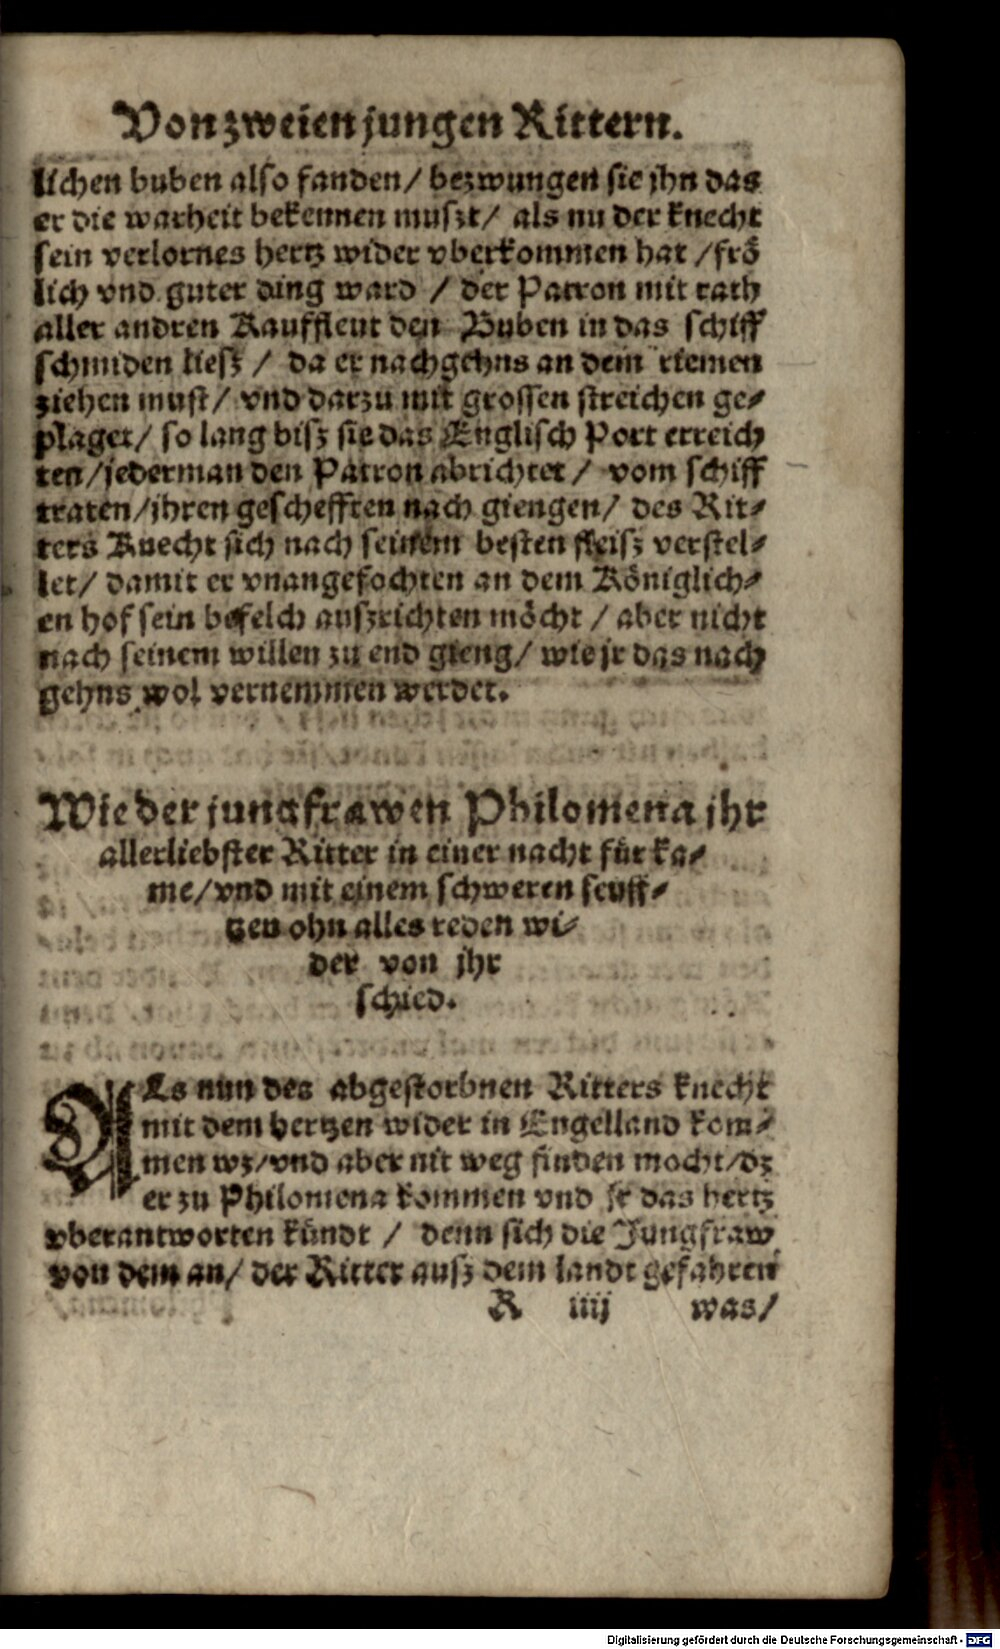 Von zweien jungen Rittern.
lichen buben also fanden/ bezwungen sie jhn das
er die warheit bekennen muszt/ als nu der knecht
sein verlornes hertz wider vberkommen hat /frö
lich vnd guter ding ward / der Patron mit rath
aller andren Kauffleut den Buben in das schiff
schmiden liesz / da er nachgehns an dem riemen
ziehen must/ vnd darzu mit grossen streichen ge-
plaget/ so lang bisz sie das Englisch Port erreich
ten/jederman den Patron abrichtet / vom schiff
traten/jhren geschefften nach giengen/ des Rit-
ters Knecht sich nach seinem besten fleisz verstel-
let/ damit er vnangefochten an dem Königlich-
en hof sein befelch auszrichten möcht / aber nicht
nach seinem willen zu end gieng/ wie jr das nach
gehns wol vernemmen werdet.
Wie der jungfrawen Philomena jhr
allerliebster Ritter in einer nacht für ka-
me/vnd mit einem schweren seuff-
tzen ohn alles reden wi-
der von jhr
schied.
ALs nun des abgestorbnen Ritters knecht
mit dem hertzen wider in Engelland kom-
men wz/vnd aber nit weg finden mocht/dz
er zu Philomena kommen vnd jr das hertz
vberantworten kündt / denn sich die Jungfraw
von dem an/ der Ritter ausz dem landt gefahren
R iiij was/
Digitalisierung gefördert durch die Deutsche Forschungsgemeinschaft - DFG